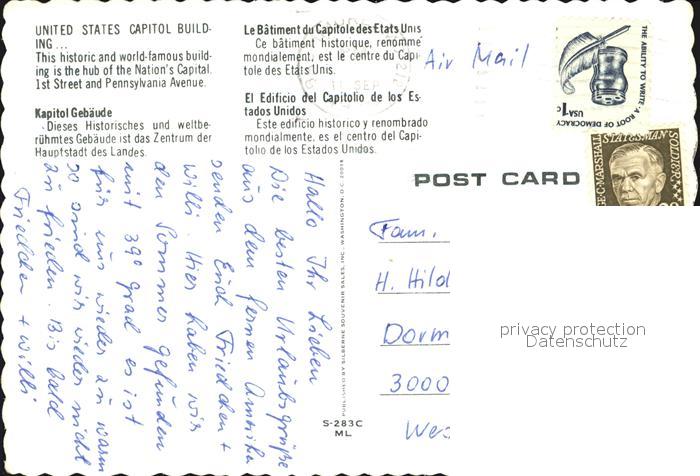 UNITED STATES CAPITOL BUILD-
ING ...
This historic and world-famous build-
ing is the hub of the Nation's Capital.
1st Street and Pennsylvania Avenue.
Kapitol Gebäude
Dieses Historisches und weltbe-
rühmtes Gebäude ist das Zentrum der
Hauptstadt des Landes.
Le Bâtiment du Capitole des Etats Unis
Ce bâtiment historique, renommé
mondialement, est le centre du Capi-
tole des Etats Unis.
El Edificio del Capitolio de los Es-
tados Unidos
Este edificio historico y renombrado
mondialmente, es el centro del Capi-
tolio de los Estados Unidos.
Air Mail
THE ABILITY TO WRITE · A ROOT OF DEMOCRACY
USA 1c
GE C. MARSHALL STATESMAN SOLDIER
POST CARD
Hallo Ihr Lieben
Die besten Urlaubsgrüße
aus dem fernen Amerika
senden Euch Friedchen +
Willi. Hier haben wir
den Sommer gefunden
mit 39° grad es ist
für uns wieder zu warm
so sind wir wieder nicht
zu frieden. Bis bald
Friedchen + Willi
PUBLISHED BY SILBERNE SOUVENIR SALES, INC. - WASHINGTON, D.C. 20018
S-283C
ML
Fam.
H. Hild
Dorm
3000
Wes
privacy protection
Datenschutz